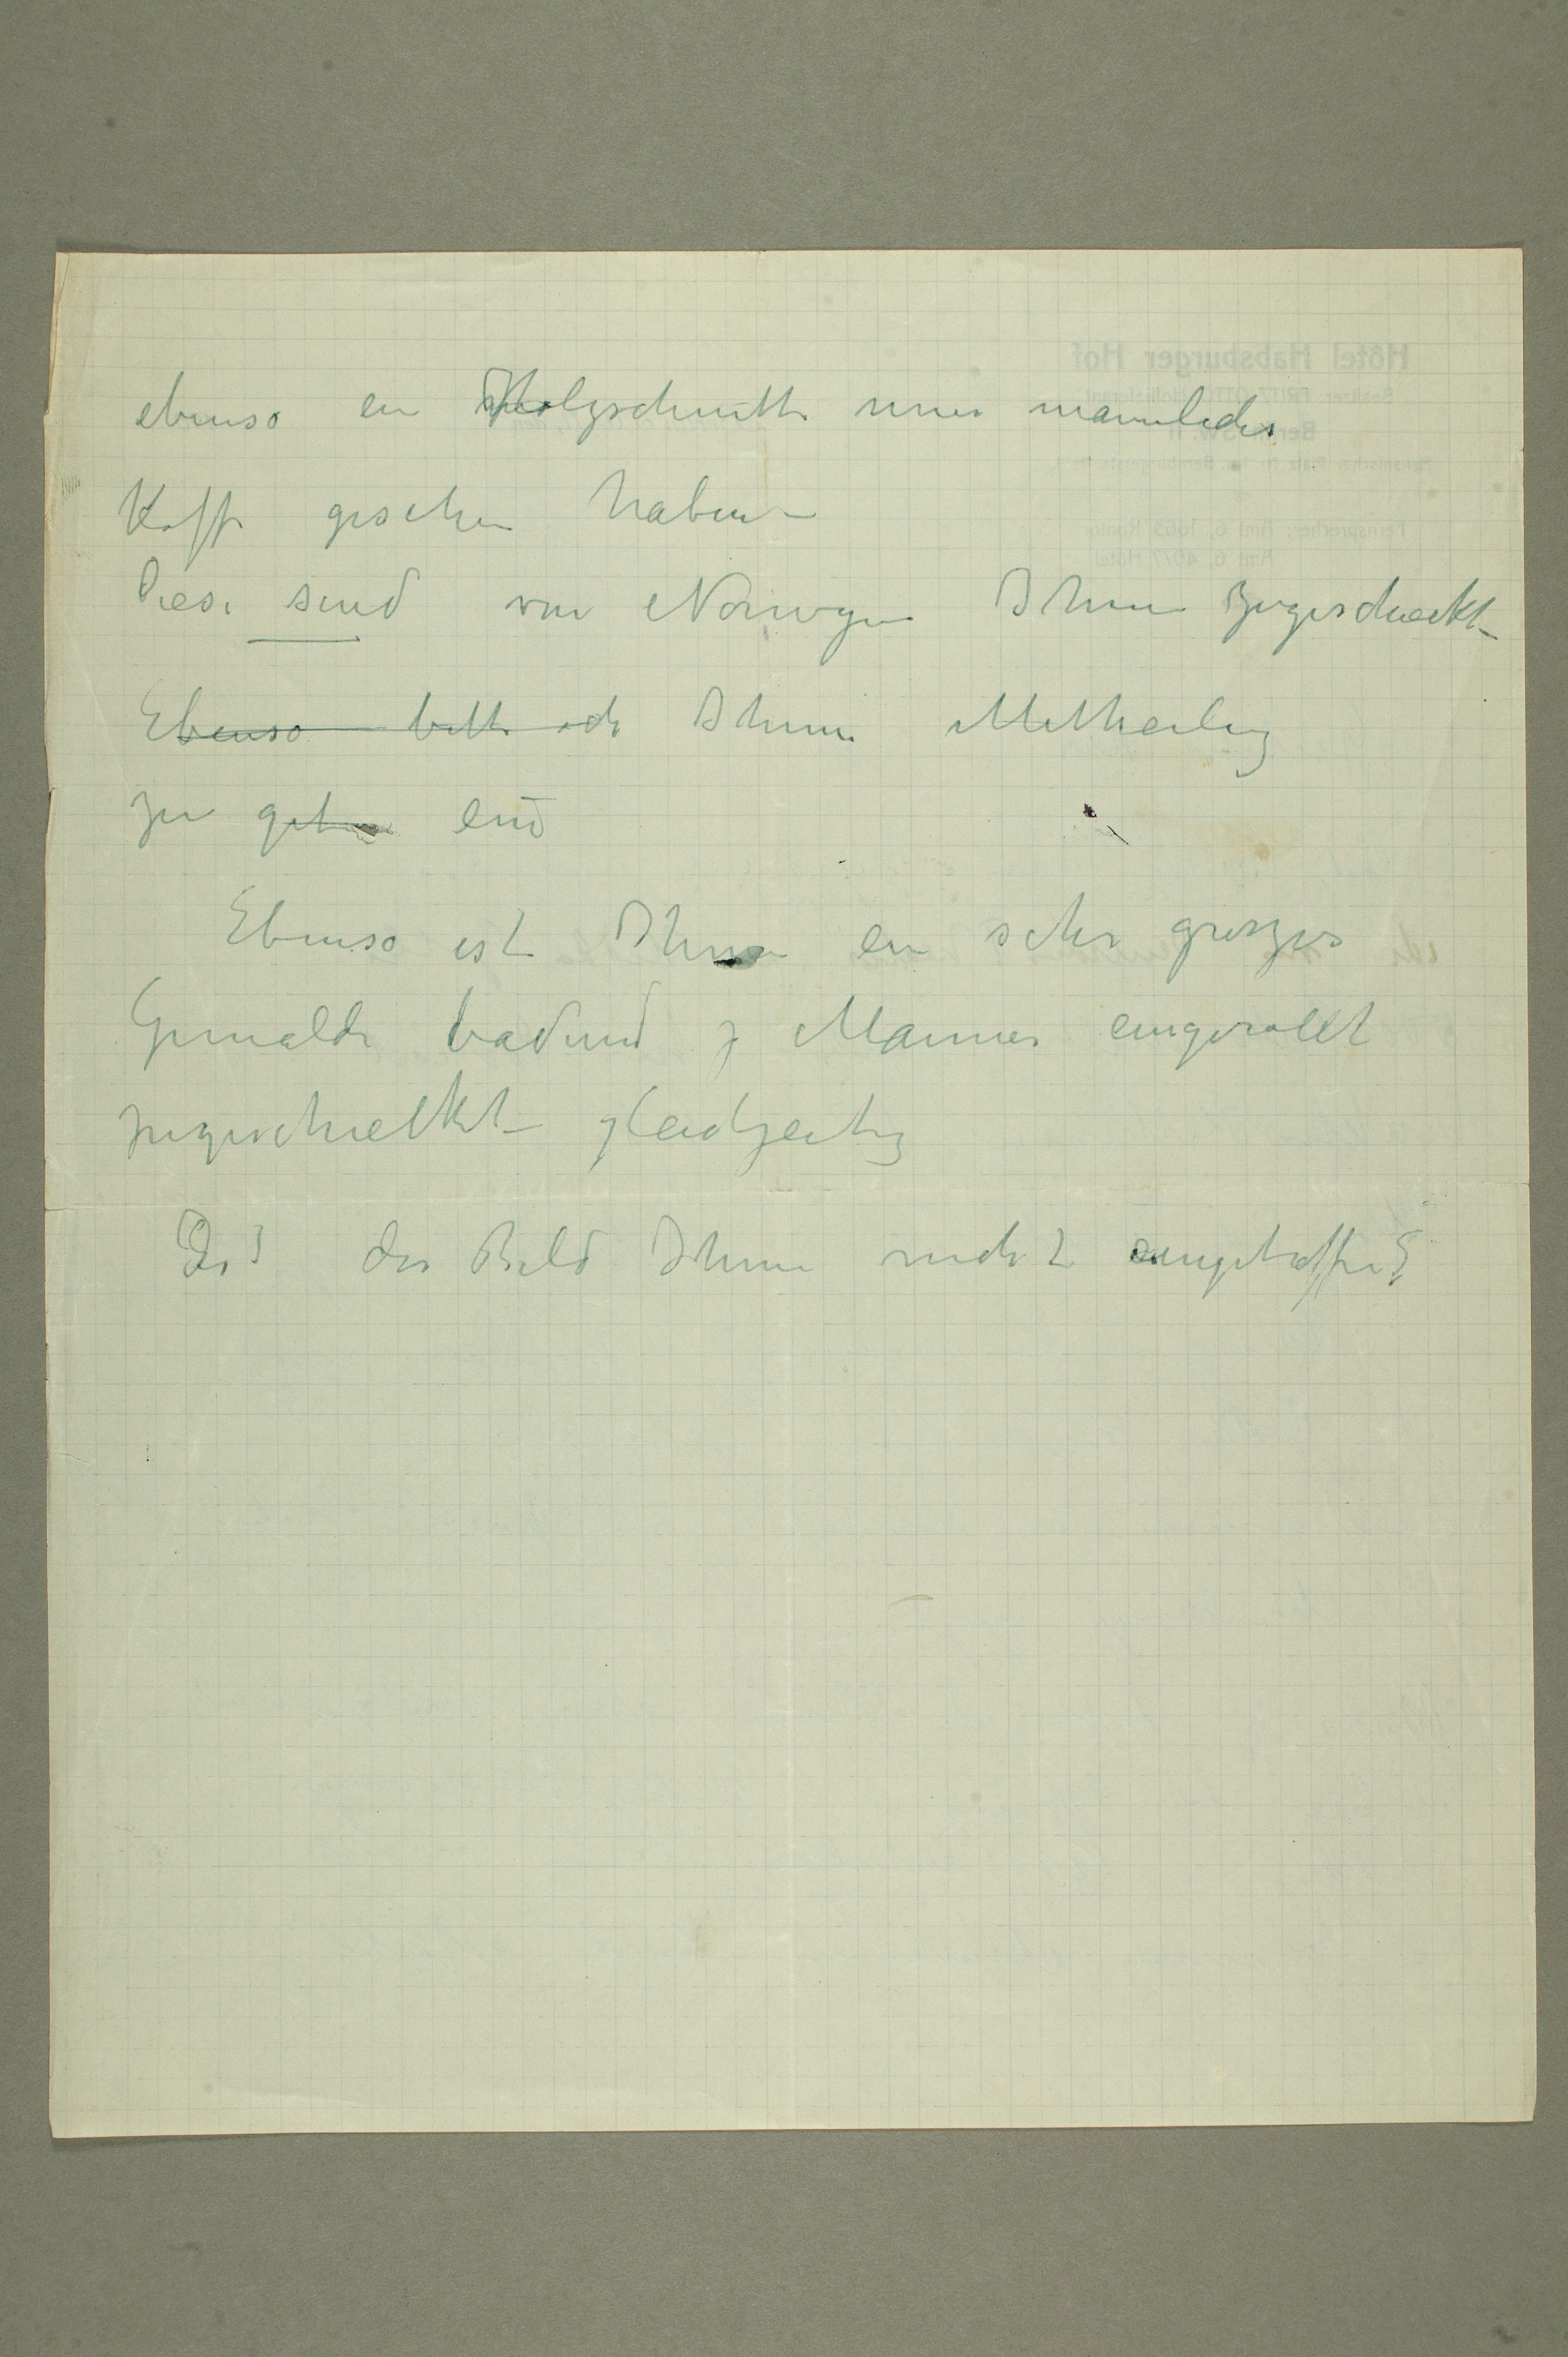 ebenso ein Holzschnitt eines mannliches
Kopf gesehen haben –
Diese sind von Norwegen Ihnen zugeschückt –
Ebenso bitte ich Ihnen Mittheilung
zu geben
Ebenso ist Ihnen ein sehr groszes
Gemalde badend Manner eingerollt
zugeschückt – gleichzeitig
Ist das Bild Ihnen nicht eingetroffen?
Hôtel Habsburger Hof